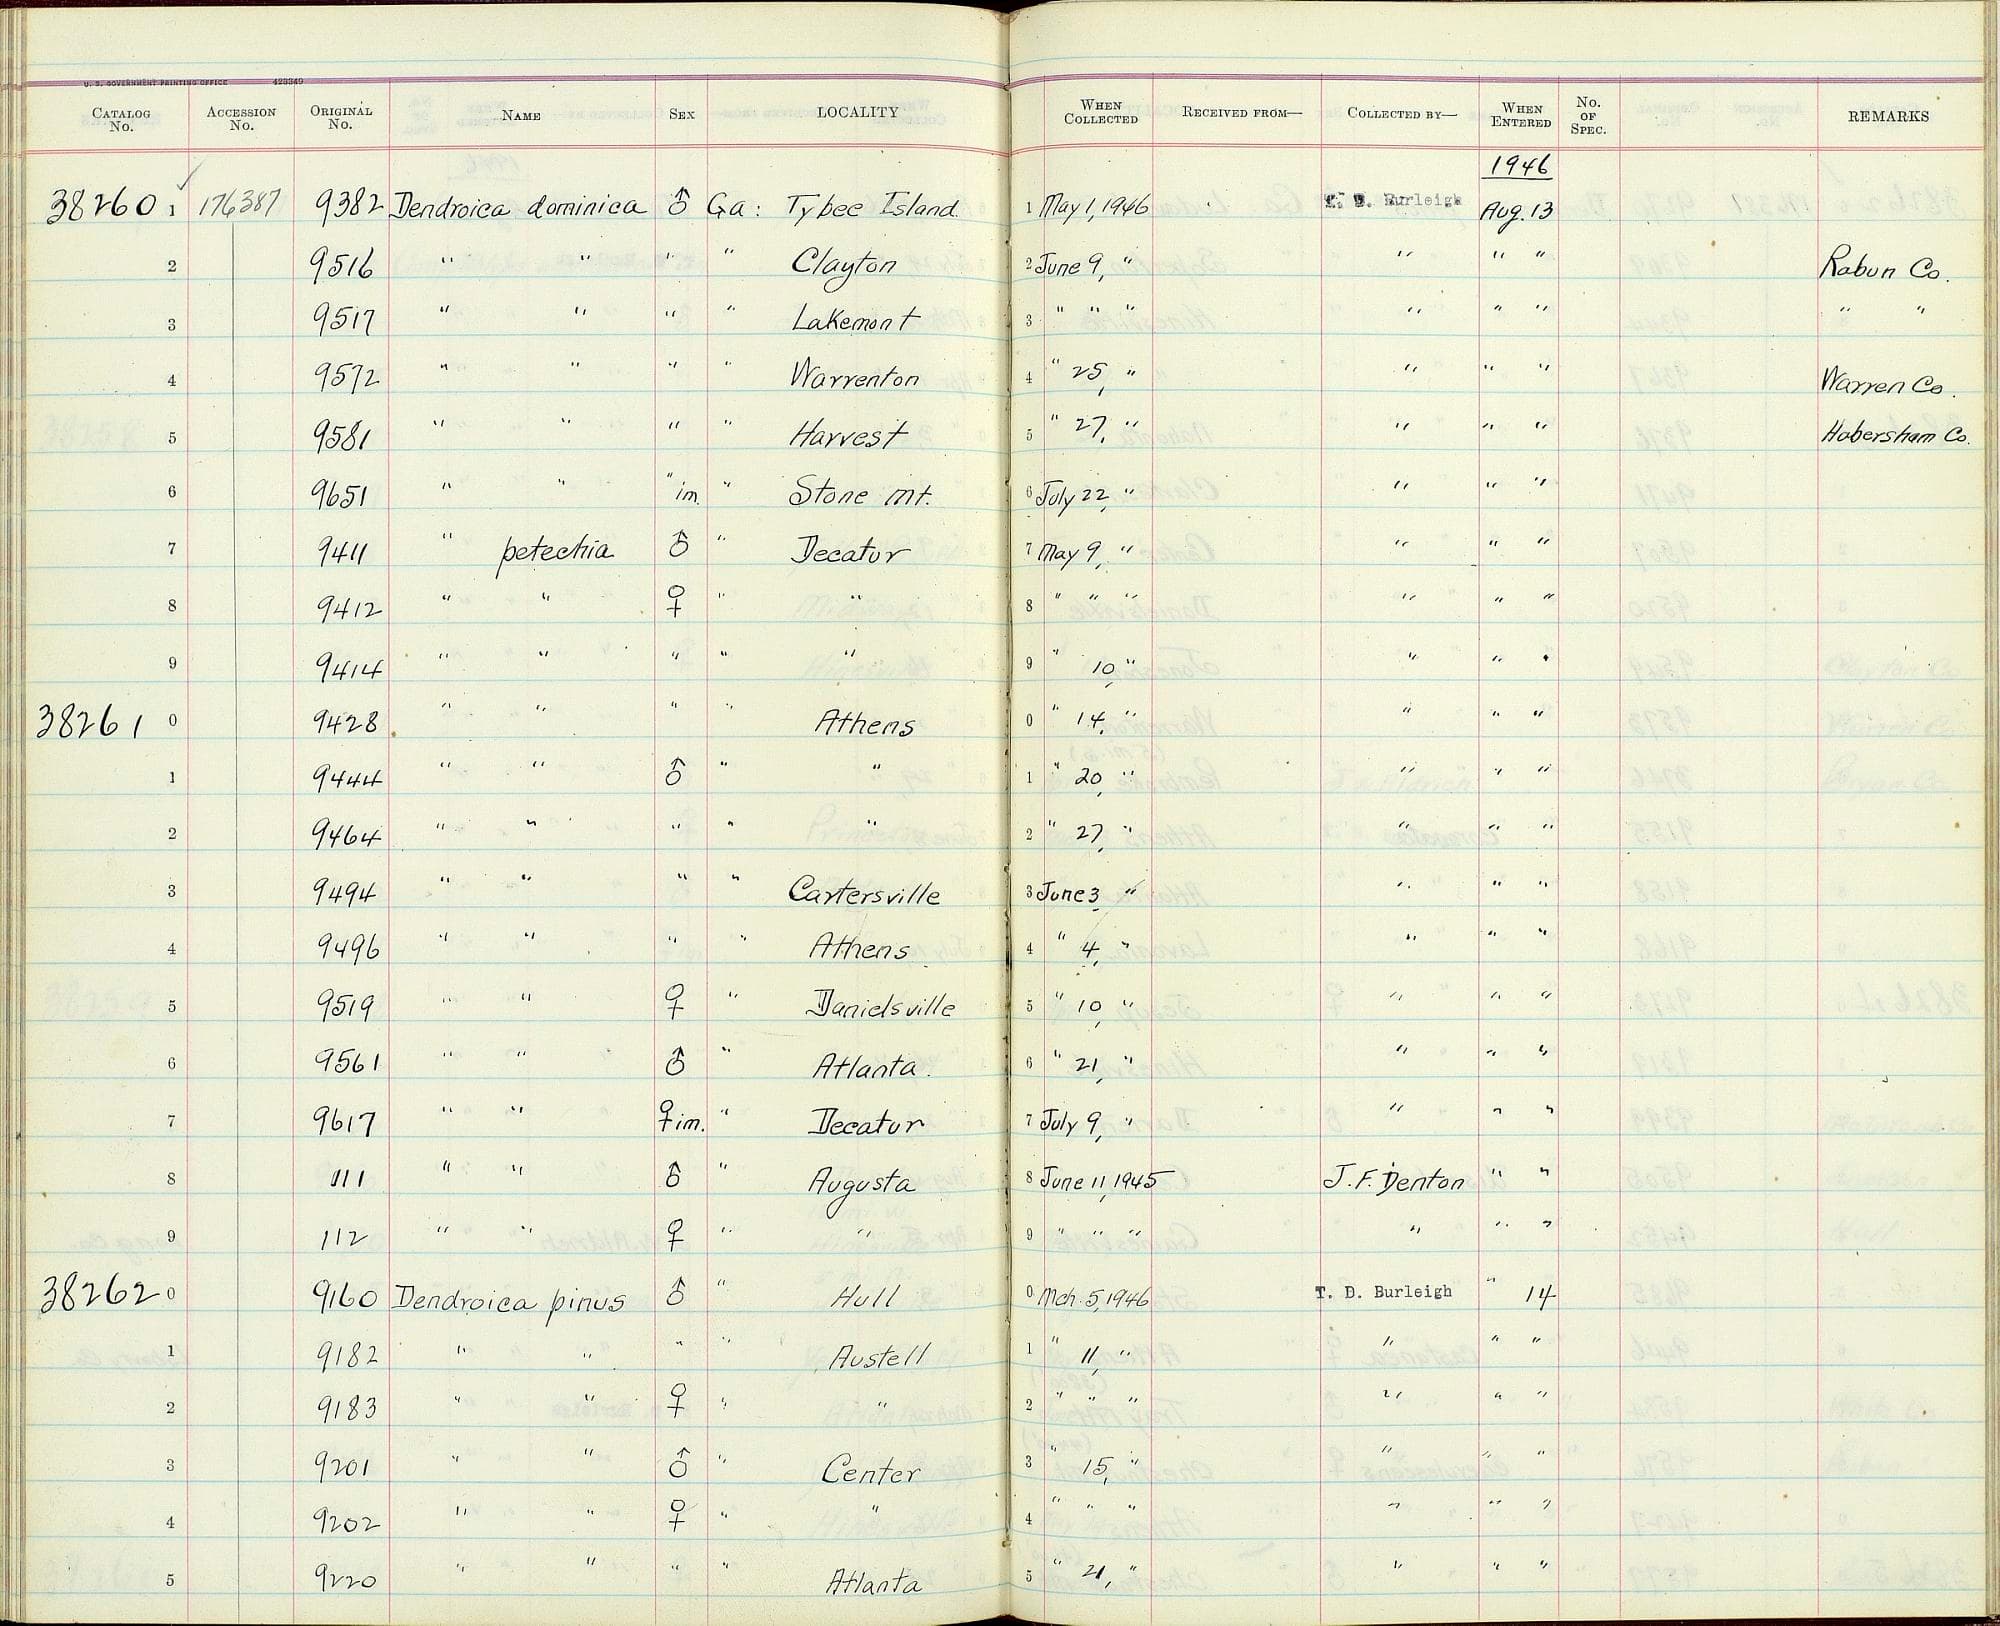 U. S. GOVERNMENT PRINTING OFFICE 423349
CATALOG No. ACCESSION No. ORIGINAL No. NAME SEX LOCALITY WHEN COLLECTED RECEIVED FROM— COLLECTED BY— WHEN ENTERED No. OF SPEC. REMARKS
1946
38260 1 176387 9382 Dendroica dominica ♂ Ga: Tybee Island 1 May 1, 1946 T. D. Burleigh Aug. 13
2 9516 " " " " Clayton 2 June 9, " " " " Rabun Co.
3 9517 " " " " Lakemont 3 " " " " " " " "
4 9572 " " " " Warrenton 4 " 25, " " " " Warren Co.
5 9581 " " " " Harvest 5 " 27, " " " " Habersham Co.
6 9651 " " " im. " Stone Mt. 6 July 22, " " " "
7 9411 " petechia ♂ " Decatur 7 May 9, " " " "
8 9412 " " ♀ " " 8 " " " " " "
9 9414 " " " " " 9 " 10, " " " "
38261 0 9428 " " " " Athens 0 " 14, " " " "
1 9444 " " ♂ " " 1 " 20, " " " "
2 9464 " " " " " 2 " 27, " " " "
3 9494 " " " " Cartersville 3 June 3, " " " "
4 9496 " " " " Athens 4 " 4, " " " "
5 9519 " " ♀ " Danielsville 5 " 10, " " " "
6 9561 " " ♂ " Atlanta. 6 " 21, " " " "
7 9617 " " ♀ im. " Decatur 7 July 9, " " " "
8 111 " " ♂ " Augusta 8 June 11, 1945 J. F. Denton " "
9 112 " " ♀ " " 9 " " " " " "
38262 0 9160 Dendroica pinus ♂ " Hull 0 Mch. 5, 1946 T. D. Burleigh " 14
1 9182 " " " " Austell 1 " 11, " " " "
2 9183 " " ♀ " " 2 " " " " " "
3 9201 " " ♂ " Center 3 " 15, " " " "
4 9202 " " ♀ " " 4 " " " " " "
5 9220 " " " " Atlanta 5 " 21, " " " "